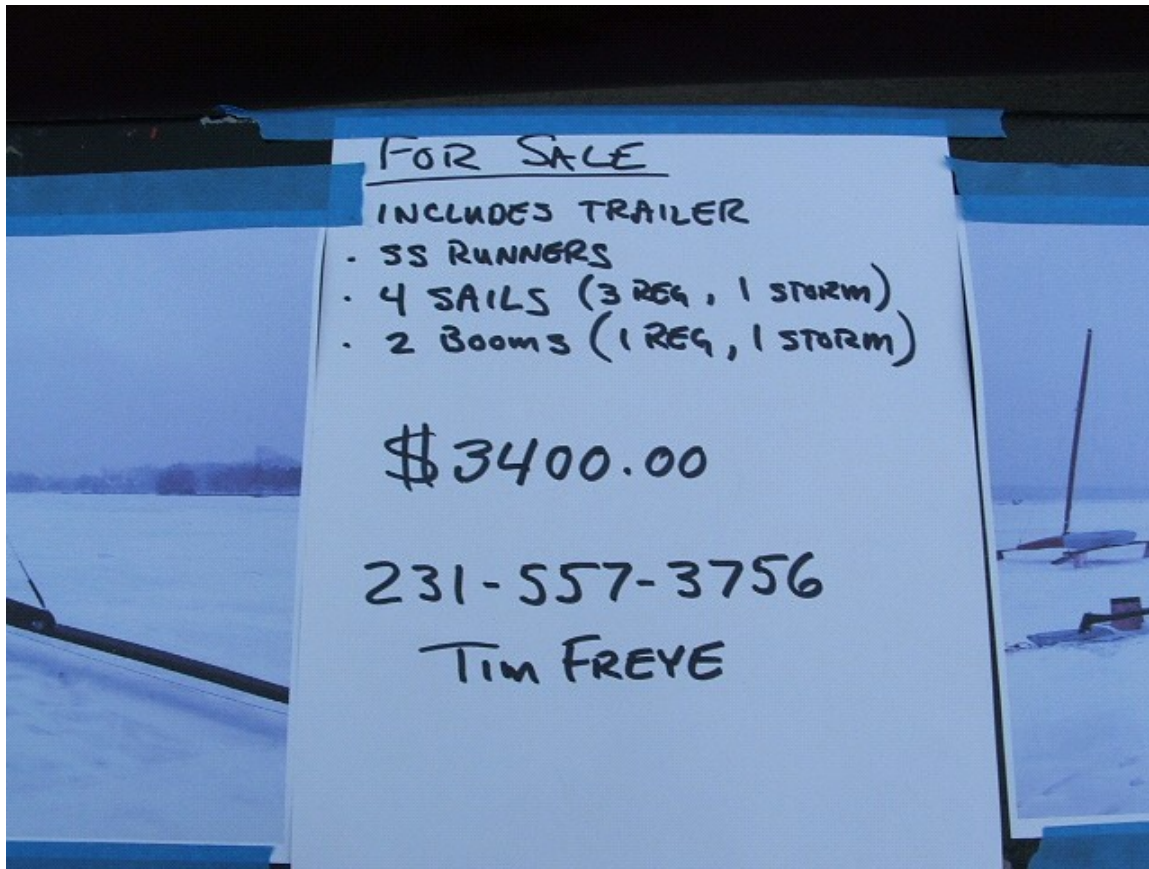 FOR SALE
· INCLUDES TRAILER
· SS RUNNERS
· 4 SAILS (3 REG, 1 STORM)
· 2 BOOMS (1 REG, 1 STORM)
$3400.00
231-557-3756
TIM FREYE